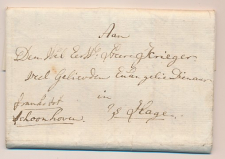 Aan
Den Wel Eerw. Heere Krieger
Veel Geliefden Euangelie Dienaar
in
's Hage.
franco tot
Schoonhoven.